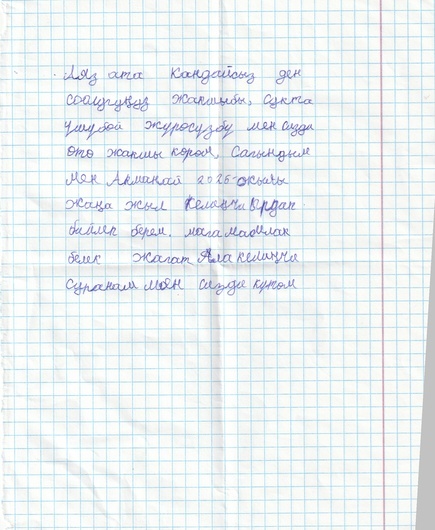 Аяз ата Кандайсыз ден
соолугуңуз жакшыбы, сукта
ушубой журосузбу мен сизди
ото жакшы кором, Сагындым
мен Акманай 2025-жылы
жаңа жыл келинчи Ырдап
бийлеп берем. мага мабилак
белек жагат Ала келиңчи
суранам мен сизди кутом